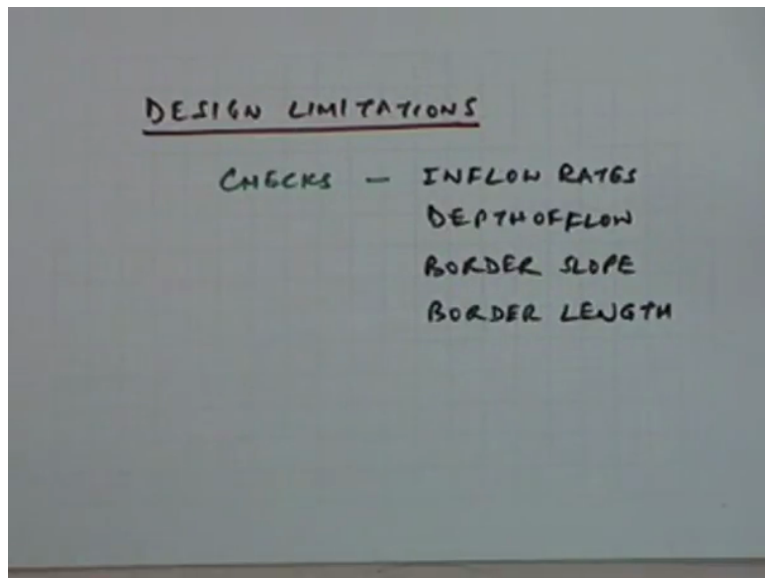 DESIGN LIMITATIONS
CHECKS — INFLOW RATES
DEPTH OF FLOW
BORDER SLOPE
BORDER LENGTH